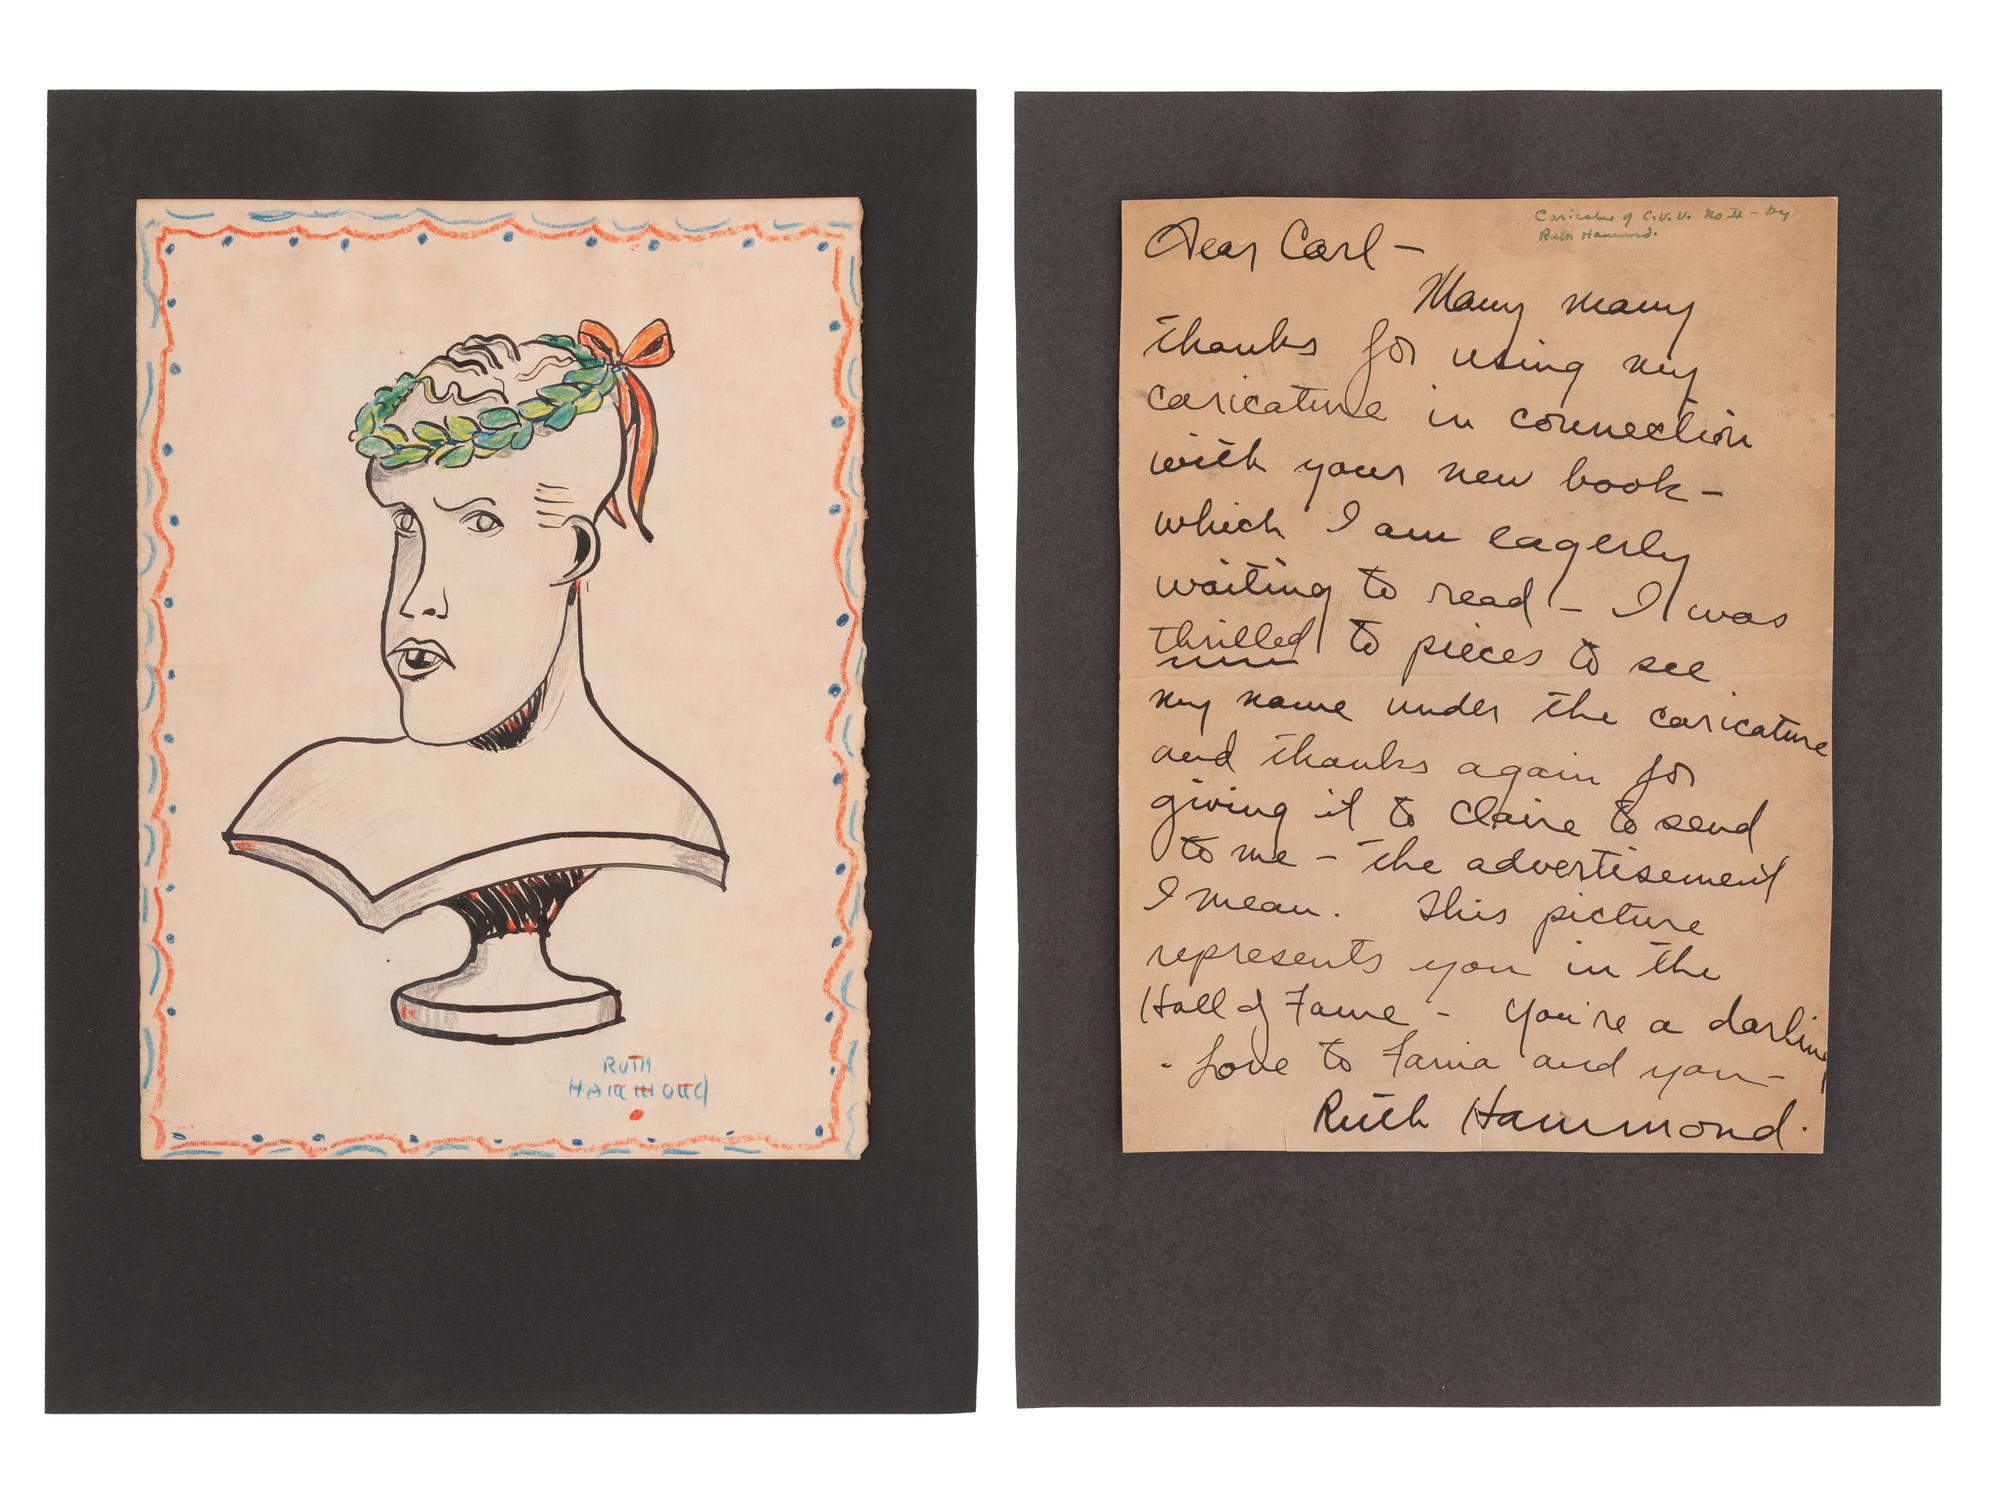 RUTH
HAMMOND
Caricature of C.V.V. No II - by
Ruth Hammond.
Dear Carl -
Many many
thanks for using my
caricature in connection
with your new book -
which I am eagerly
waiting to read - I was
thrilled to pieces to see
my name under the caricature
and thanks again for
giving it to Claire to send
to me - the advertisement
I mean. This picture
represents you in the
Hall of Fame - You're a darling
- Love to Fania and you -
Ruth Hammond.